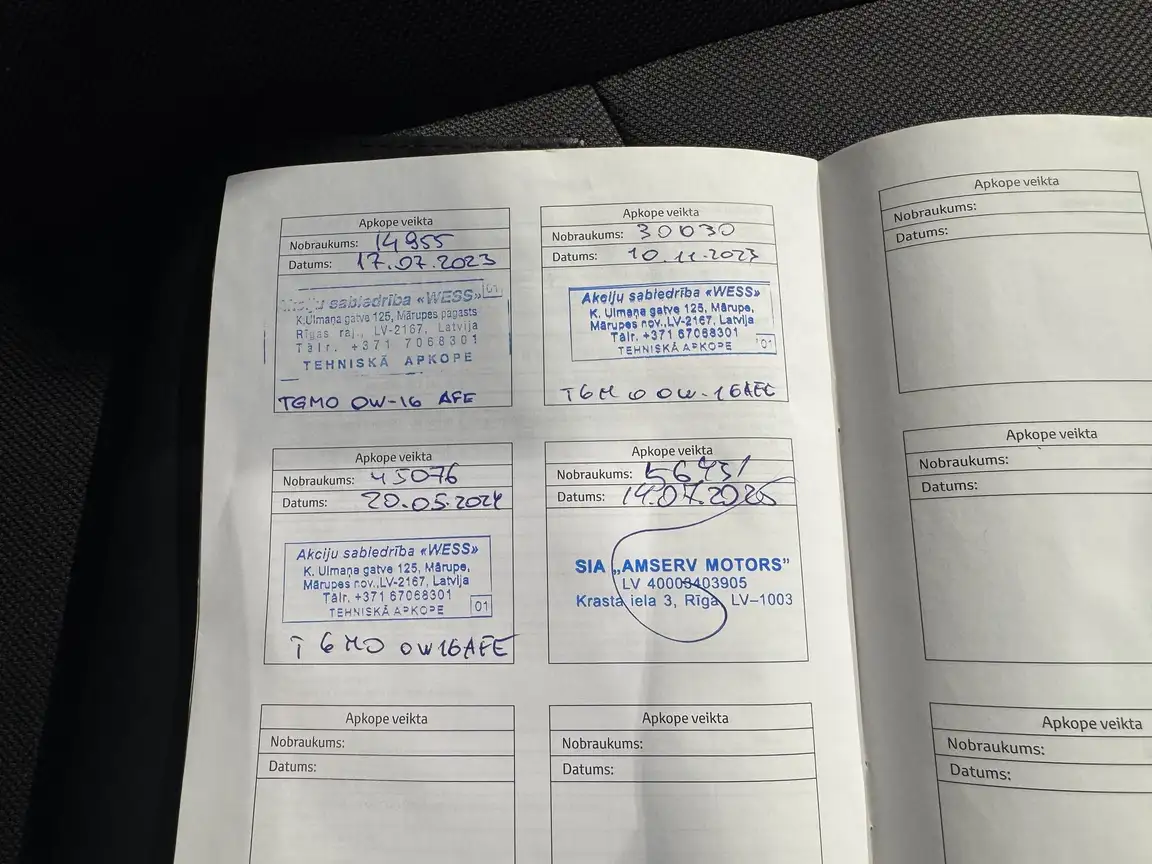 Apkope veikta
Nobraukums: 14955
Datums: 17.07.2023
Akciju sabiedrība «WESS» 01
K.Ulmaņa gatve 125, Mārupes pagasts
Rīgas raj., LV-2167, Latvija
Tālr. +371 7068301
TEHNISKĀ APKOPE
TGMO OW-16 AFE
Apkope veikta
Nobraukums: 30030
Datums: 10.11.2023
Akciju sabiedrība «WESS»
K. Ulmaņa gatve 125, Mārupe,
Mārupes nov.,LV-2167, Latvija
Tālr. +371 67068301
TEHNISKĀ APKOPE 01
TGMO OW-16AFE
Apkope veikta
Nobraukums: 45076
Datums: 20.05.2024
Akciju sabiedrība «WESS»
K. Ulmaņa gatve 125, Mārupe,
Mārupes nov.,LV-2167, Latvija
Tālr. +371 67068301
TEHNISKĀ APKOPE 01
TGMO OW16AFE
Apkope veikta
Nobraukums: 56431
Datums: 14.07.2025
SIA „AMSERV MOTORS”
LV 40003403905
Krasta iela 3, Rīga, LV-1003
Apkope veikta
Nobraukums:
Datums:
Apkope veikta
Nobraukums:
Datums:
Apkope veikta
Nobraukums:
Datums:
Apkope veikta
Nobraukums:
Datums:
Apkope veikta
Nobraukums:
Datums: